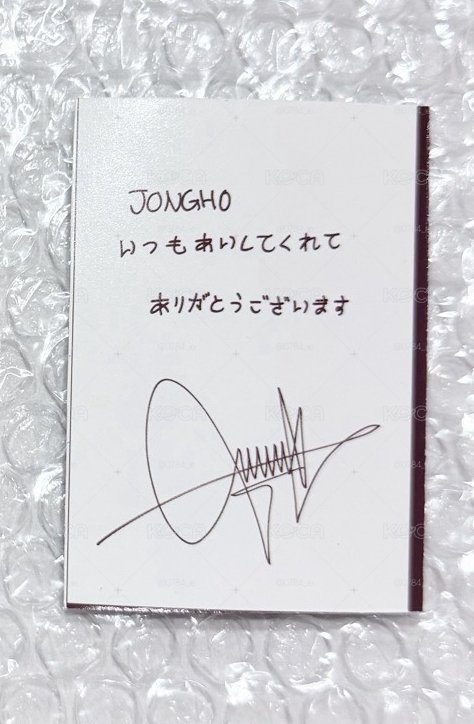 JONGHO
いつもあいしてくれて
ありがとうございます
KOCA